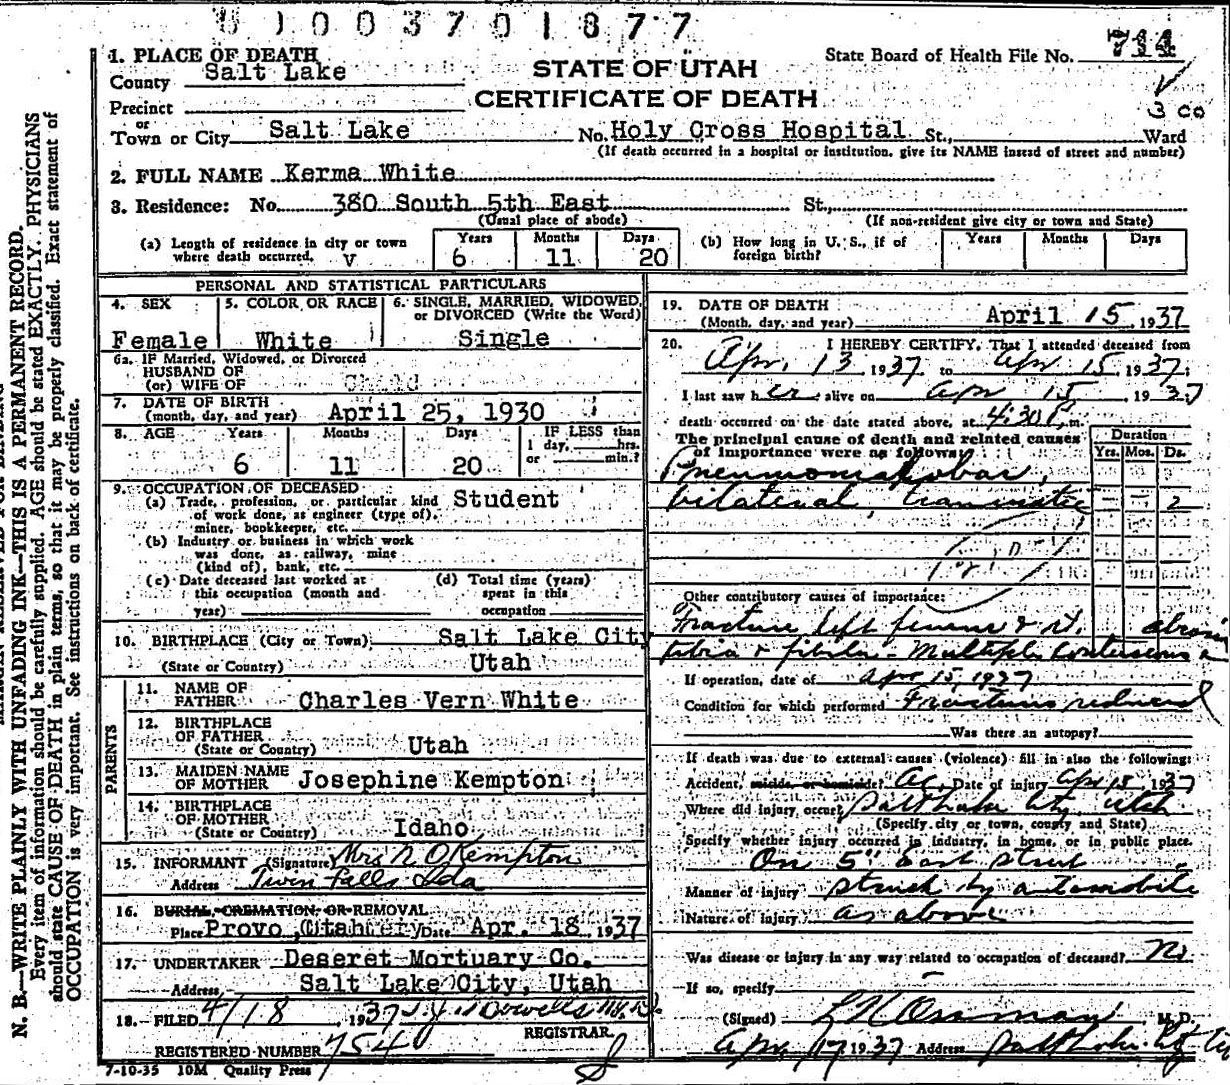 U1003701877
1. PLACE OF DEATH
County Salt Lake
Precinct
or
Town or City Salt Lake
STATE OF UTAH
CERTIFICATE OF DEATH
State Board of Health File No. 711
3 co
No. Holy Cross Hospital St., Ward
(If death occurred in a hospital or institution, give its NAME instead of street and number)
2. FULL NAME Kerma White
3. Residence: No. 380 South 5th East St.,
(Usual place of abode) (If non-resident give city or town and State)
(a) Length of residence in city or town where death occurred. Years 6 Months 11 Days 20
(b) How long in U. S., if of foreign birth? Years Months Days
PERSONAL AND STATISTICAL PARTICULARS
4. SEX Female
5. COLOR OR RACE White
6. SINGLE, MARRIED, WIDOWED, or DIVORCED (Write the Word) Single
6a. IF Married, Widowed, or Divorced
HUSBAND OF
(or) WIFE OF Child
7. DATE OF BIRTH
(month, day, and year) April 25, 1930
8. AGE Years 6 Months 11 Days 20 IF LESS than 1 day, hrs. or min.?
9. OCCUPATION OF DECEASED
(a) Trade, profession, or particular kind of work done, as engineer (type of), miner, bookkeeper, etc. Student
(b) Industry or business in which work was done, as railway, mine (kind of), bank, etc.
(c) Date deceased last worked at this occupation (month and year)
(d) Total time (years) spent in this occupation
10. BIRTHPLACE (City or Town) Salt Lake City
(State or Country) Utah
PARENTS
11. NAME OF FATHER Charles Vern White
12. BIRTHPLACE OF FATHER
(State or Country) Utah
13. MAIDEN NAME OF MOTHER Josephine Kempton
14. BIRTHPLACE OF MOTHER
(State or Country) Idaho
15. INFORMANT (Signature) Mrs N O Kempton
Address Twin Falls Ida
16. BURIAL, CREMATION, OR REMOVAL
Place Provo, Utah Date Apr. 18 1937
17. UNDERTAKER Deseret Mortuary Co.
Address Salt Lake City, Utah
18. FILED 4/18 1937
REGISTRAR.
REGISTERED NUMBER 754
7-10-35 10M Quality Press
19. DATE OF DEATH
(Month, day, and year) April 15, 1937
20. I HEREBY CERTIFY, That I attended deceased from
Apr. 13 1937 to Apr 15 1937;
I last saw her alive on Apr 15, 1937
death occurred on the date stated above, at 4:30 P. m.
The principal cause of death and related causes of importance were as follows:
Duration
Yrs. Mos. Ds.
Pneumonia, Lobar,
bilateral, traumatic 2
Other contributory causes of importance:
Fracture left femur & rt.
tibia & fibula - Multiple contusions
If operation, date of Apr 15, 1937
Condition for which performed Fractures reduced
Was there an autopsy?
If death was due to external causes (violence) fill in also the following:
Accident, suicide, or homicide? Ac. Date of injury Apr 13 1937
Where did injury occur? Salt Lake City, Utah
(Specify city or town, county and State)
Specify whether injury occurred in industry, in home, or in public place.
On 5" East Street
Manner of injury struck by automobile
Nature of injury as above
Was disease or injury in any way related to occupation of deceased? No
If so, specify
(Signed) M. D.
Apr 17 1937 Address Salt Lake City
N. B.—WRITE PLAINLY WITH UNFADING INK—THIS IS A PERMANENT RECORD.
Every item of information should be carefully supplied. AGE should be stated EXACTLY. PHYSICIANS
should state CAUSE OF DEATH in plain terms, so that it may be properly classified. Exact statement of
OCCUPATION is very important. See instructions on back of certificate.